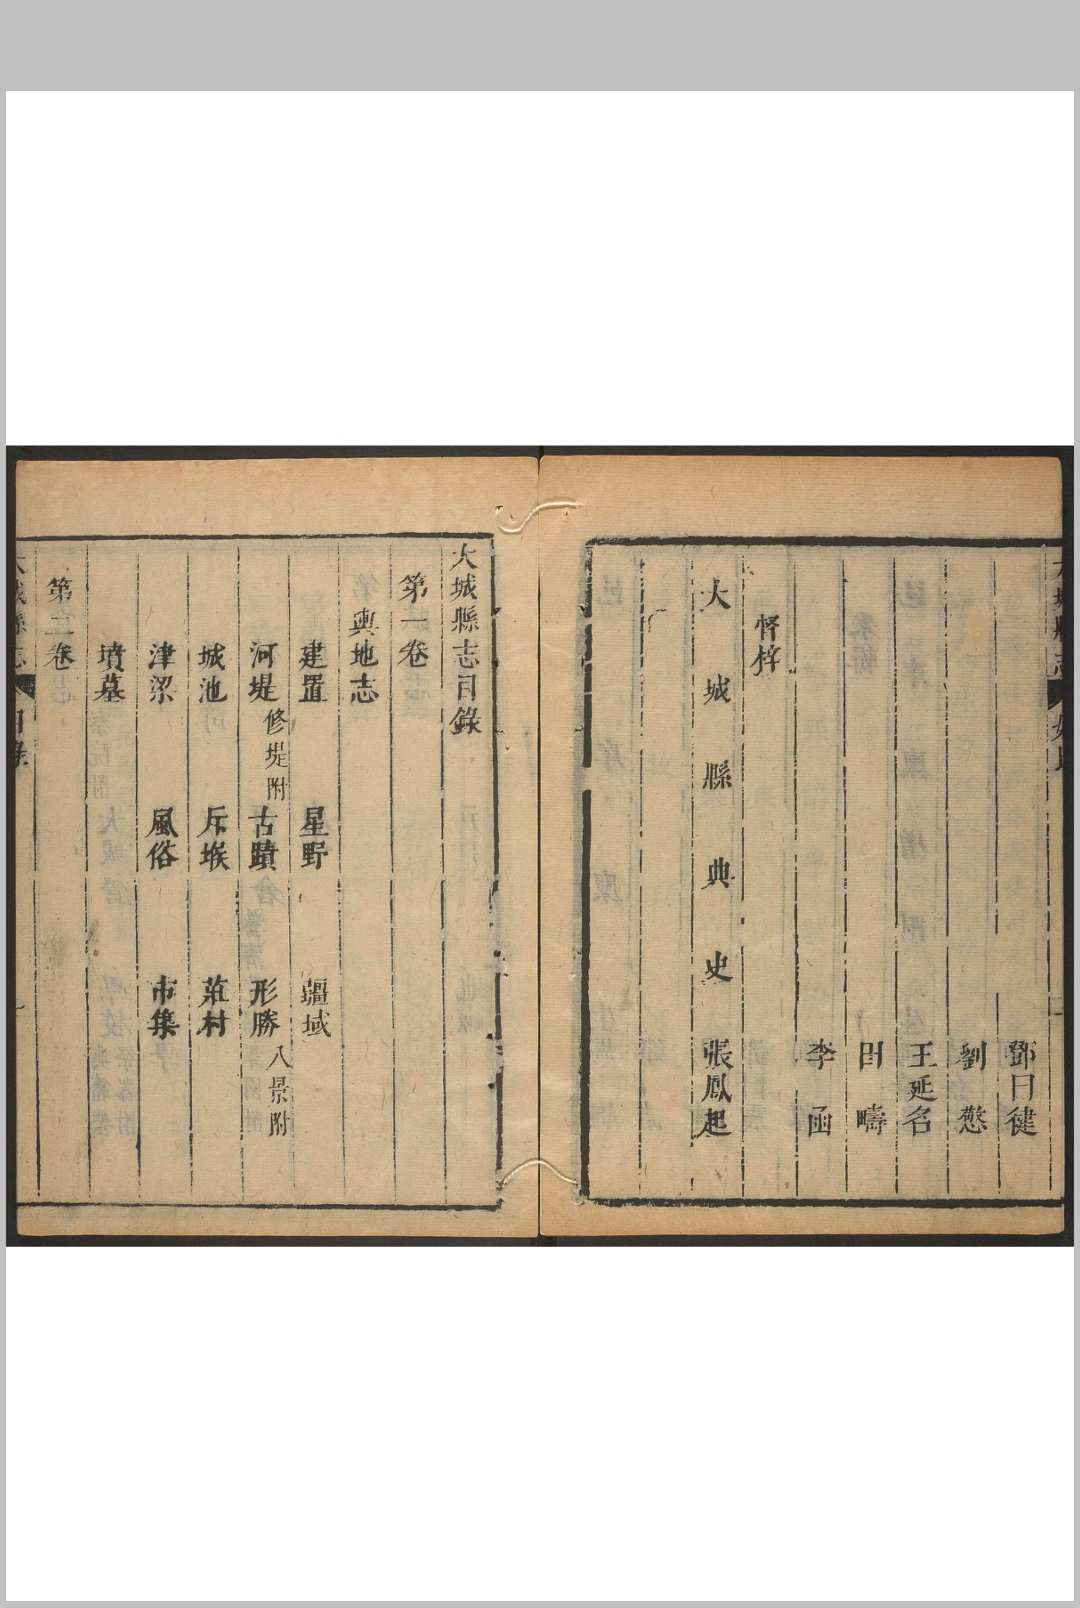 鄧日健
劉懲
王延名
田疇
李函
督梓
大城縣典史張鳳起
大城縣志目錄
第一卷
輿地志
建置 星野 疆域
河堤修堤附 古蹟 形勝八景附
城池 斥堠 莊村
津梁 風俗 市集
墳墓
第二卷
大城縣志 目錄